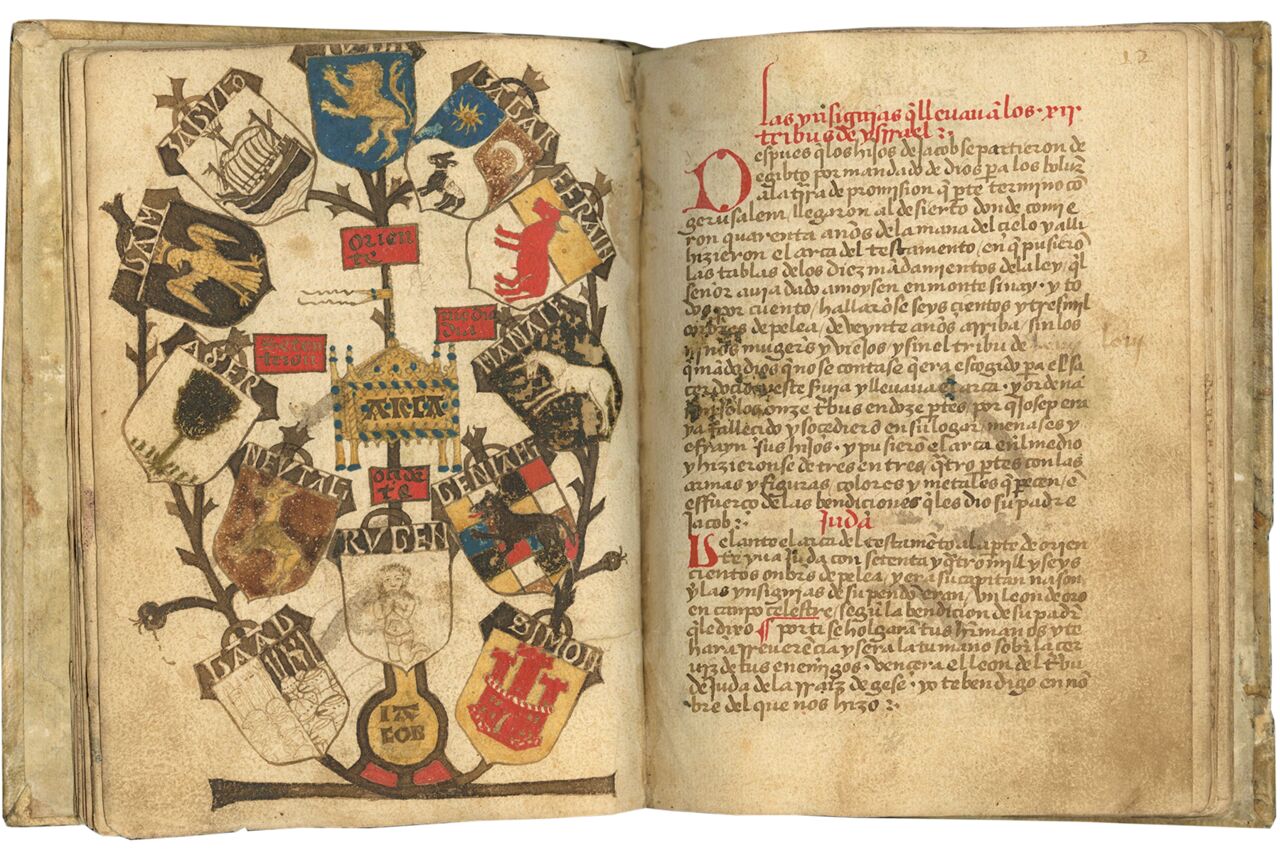 JUDA
ZABULO
ISACAR
DAM
EFRAIN
orien
te
medio
dia
ASER
MANASES
ARCA
NEVTAL
ocide
te
BENIAMI
RUBEN
GAAD
SIMON
IA
COB
12
Las ynsignias q̃ llevavā los .xii.
tribus de ysrrael :·
Despues q̃ los hijos de Jacob se partieron de
egibto por mandado de dios pa los boluer
a la trra de promision q̃ pte termino cō
gerusalem, llegaron al desierto donde comie
ron quarenta anos de la mana del cielo y alli
hizieron el arca del testamento, en q̃ pusierō
las tablas de los diez mādamientos de la ley, q̃l
señor avia dado a moysen en monte sinay. y to
dos por cuento, hallarōse seys cientos y tres mil
onbres de pelea, de veynte anos arriba, sin los
ninos mugers y viejos y sin el tribu de
q̃ mādo dios q̃ no se contase q̃ era escogido pa el sa
cerdocio y este servia y llevava el arca. y ordenā
onze tbus en doze ptes, por q̃ Josep era
ya fallecido y socedierō en su logar, menases y
efrayn sus hijos. y pusierō el arca en l medio
y hizieronse de tres en tres, q̃tro ptes con las
armas y figuras colores y metales q̃ pecen, e
esfuerco de las bendiciones q̃ les dio su padre
Jacob :·
Juda
Delante el arca del testamēto a la pte de orien
te yva Juda con setenta y q̃tro mill y seys
cientos onbrs de pelea, y era su capitan nason
y las ynsignias de su pendō eran, vn leon de oro
en canpo celestre, segū la bendicion de su padr
q̃ le dixo ¶ por ti se holgaran tus hrmanos y te
haran rreverēcia y sera la tu mano sobr la cer
uiz de tus enemigos. vencera el leon del tbu
de Juda de la rraiz de gese. yo te bendigo en nō
bre del que nos hizo :·